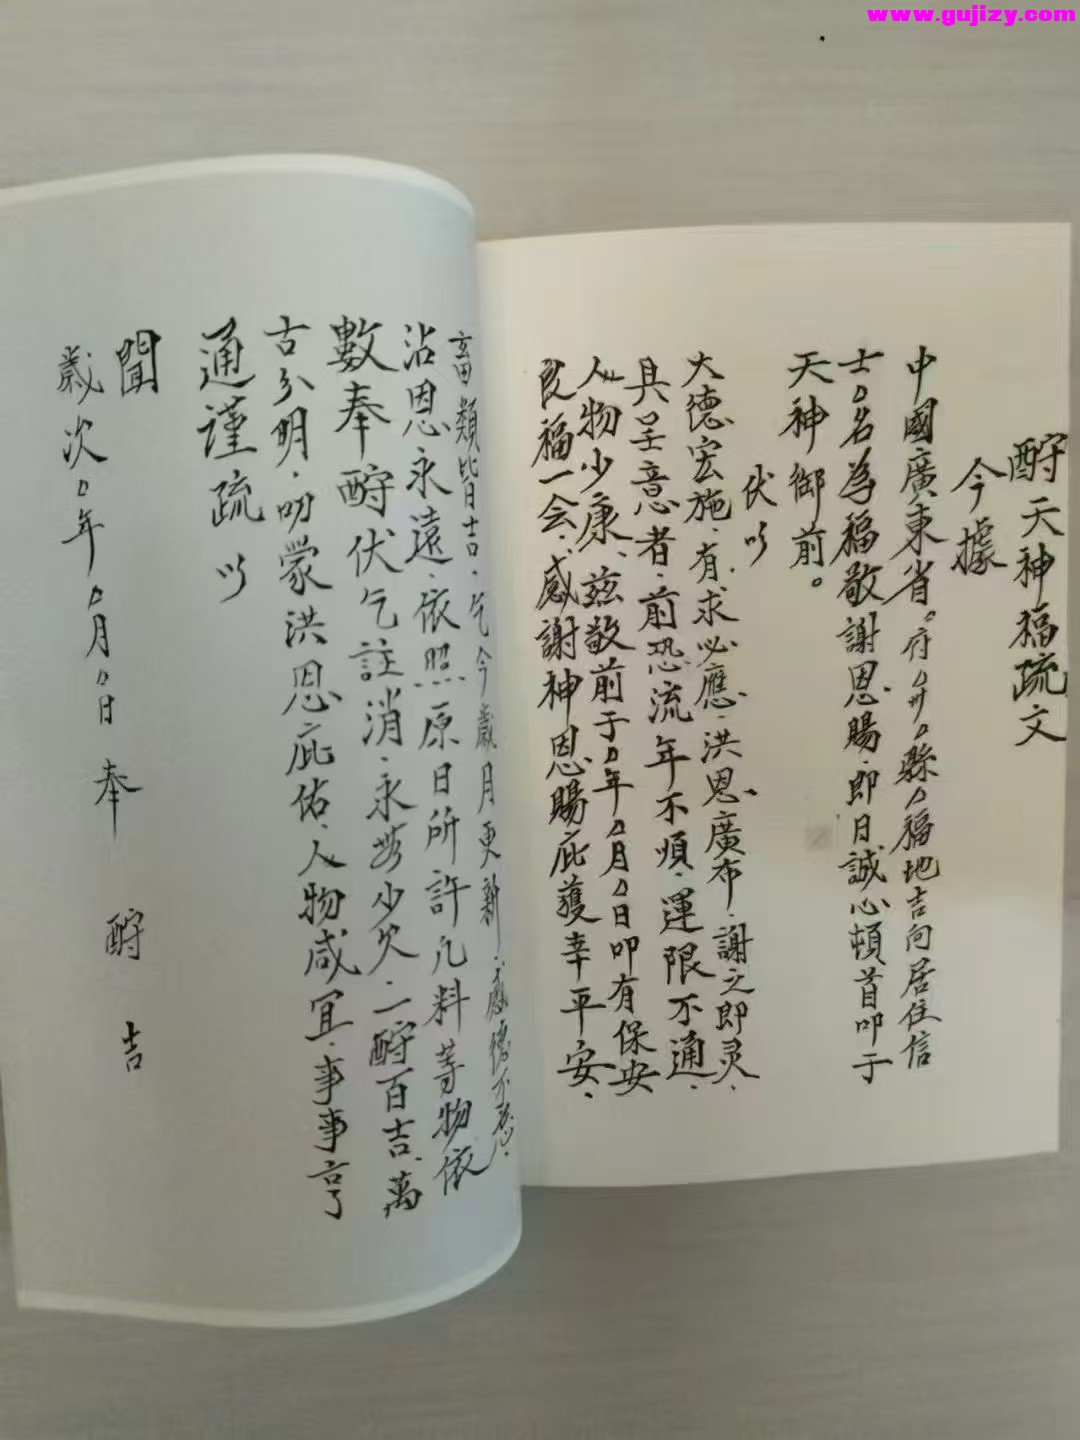 www.gujizy.com
酧天神福疏文
今據
中國廣東省。府〇州〇縣〇福地吉向居住信
士〇名為福敬謝恩賜、即日誠心頓首叩于
天神御前。
伏以
大德宏施、有求必應、洪恩廣布、謝之即灵、
具呈意者、前恐流年不順、運限不通、
人物少康、兹敬前于〇年〇月〇日叩有保安
良福一会、感謝神恩賜庇護幸平安、
畜類皆吉、乞今歲月更新、感德不忘、
沾恩永遠、依照原日所許凡料等物依
數奉酧伏乞註消、永無少欠、一酧百吉、萬
古分明、叨蒙洪恩庇佑、人物咸宜、事事亨
通謹疏 以
聞
歲次〇年〇月〇日 奉 酧 吉